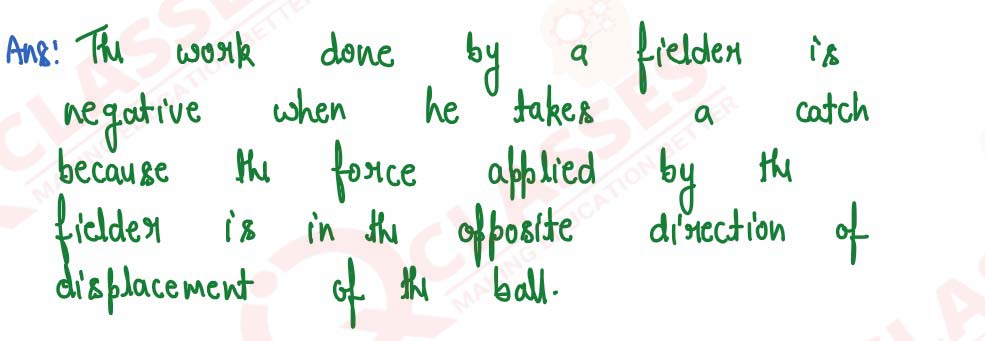 Ans: The work done by a fielder is
negative when he takes a catch
because the force applied by the
fielder is in the opposite direction of
displacement of the ball.